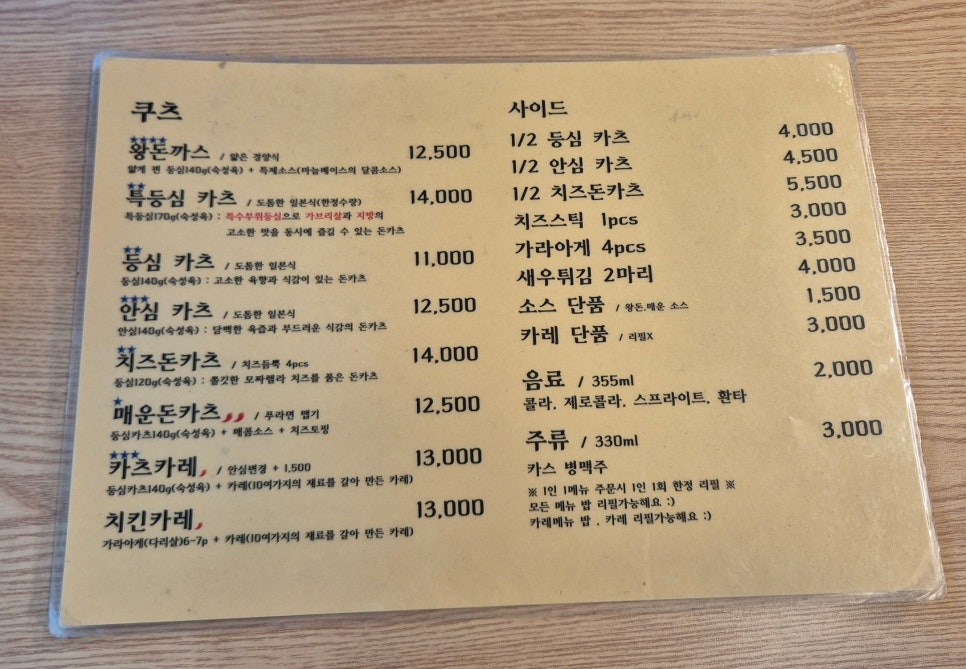 쿠츠
★★★★
왕돈까스 / 얇은 경양식 12,500
얇게 편 등심140g(숙성육) + 특제소스(마늘베이스의 달콤소스)
★★
특등심 카츠 / 도톰한 일본식(한정수량) 14,000
특등심170g(숙성육) : 특수부위등심으로 가브리살과 지방의
고소한 맛을 동시에 즐길 수 있는 돈카츠
★★
등심 카츠 / 도톰한 일본식 11,000
등심140g(숙성육) : 고소한 육향과 식감이 있는 돈카츠
★★★
안심 카츠 / 도톰한 일본식 12,500
안심140g(숙성육) : 담백한 육즙과 부드러운 식감의 돈카츠
★★
치즈돈카츠 / 치즈듬뿍 4pcs 14,000
등심120g(숙성육) : 쫄깃한 모짜렐라 치즈를 품은 돈카츠
★
매운돈카츠 / 푸라면 맵기 12,500
등심카츠140g(숙성육) + 매콤소스 + 치즈토핑
★★★
카츠카레 / 안심변경 + 1,500 13,000
등심카츠140g(숙성육) + 카레(10여가지의 재료를 갈아 만든 카레)
치킨카레 13,000
가라아게(다리살)6-7p + 카레(10여가지의 재료를 갈아 만든 카레)
사이드
1/2 등심 카츠 4,000
1/2 안심 카츠 4,500
1/2 치즈돈카츠 5,500
치즈스틱 1pcs 3,000
가라아게 4pcs 3,500
새우튀김 2마리 4,000
소스 단품 / 왕돈.매운 소스 1,500
카레 단품 / 리필X 3,000
음료 / 355ml 2,000
콜라. 제로콜라. 스프라이트. 환타
주류 / 330ml 3,000
카스 병맥주
※ 1인 1메뉴 주문시 1인 1회 한정 리필 ※
모든 메뉴 밥 리필가능해요 :)
카레메뉴 밥 , 카레 리필가능해요 :)